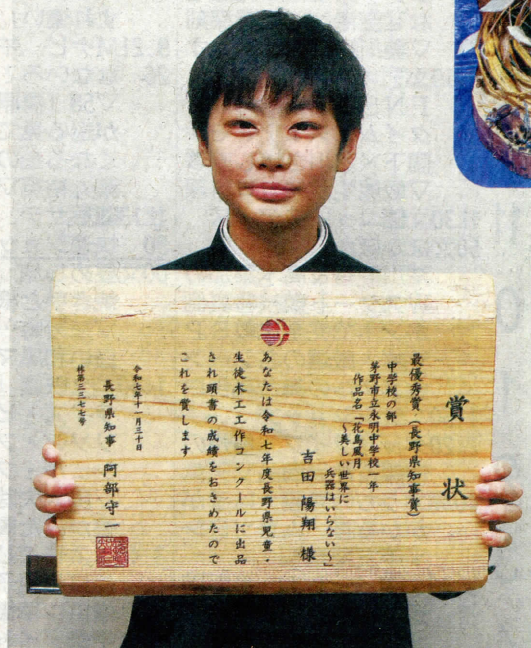 賞状
最優秀賞（長野県知事賞）
中学校の部
茅野市立永明中学校一年
作品名「花鳥風月
～美しい世界に
兵器はいらない～」
吉田陽翔様
あなたは令和七年度長野県児童・
生徒木工工作コンクールに出品
され頭書の成績をおさめたので
これを賞します
令和七年十一月三十日
長野県知事 阿部守一
林第三三七七号